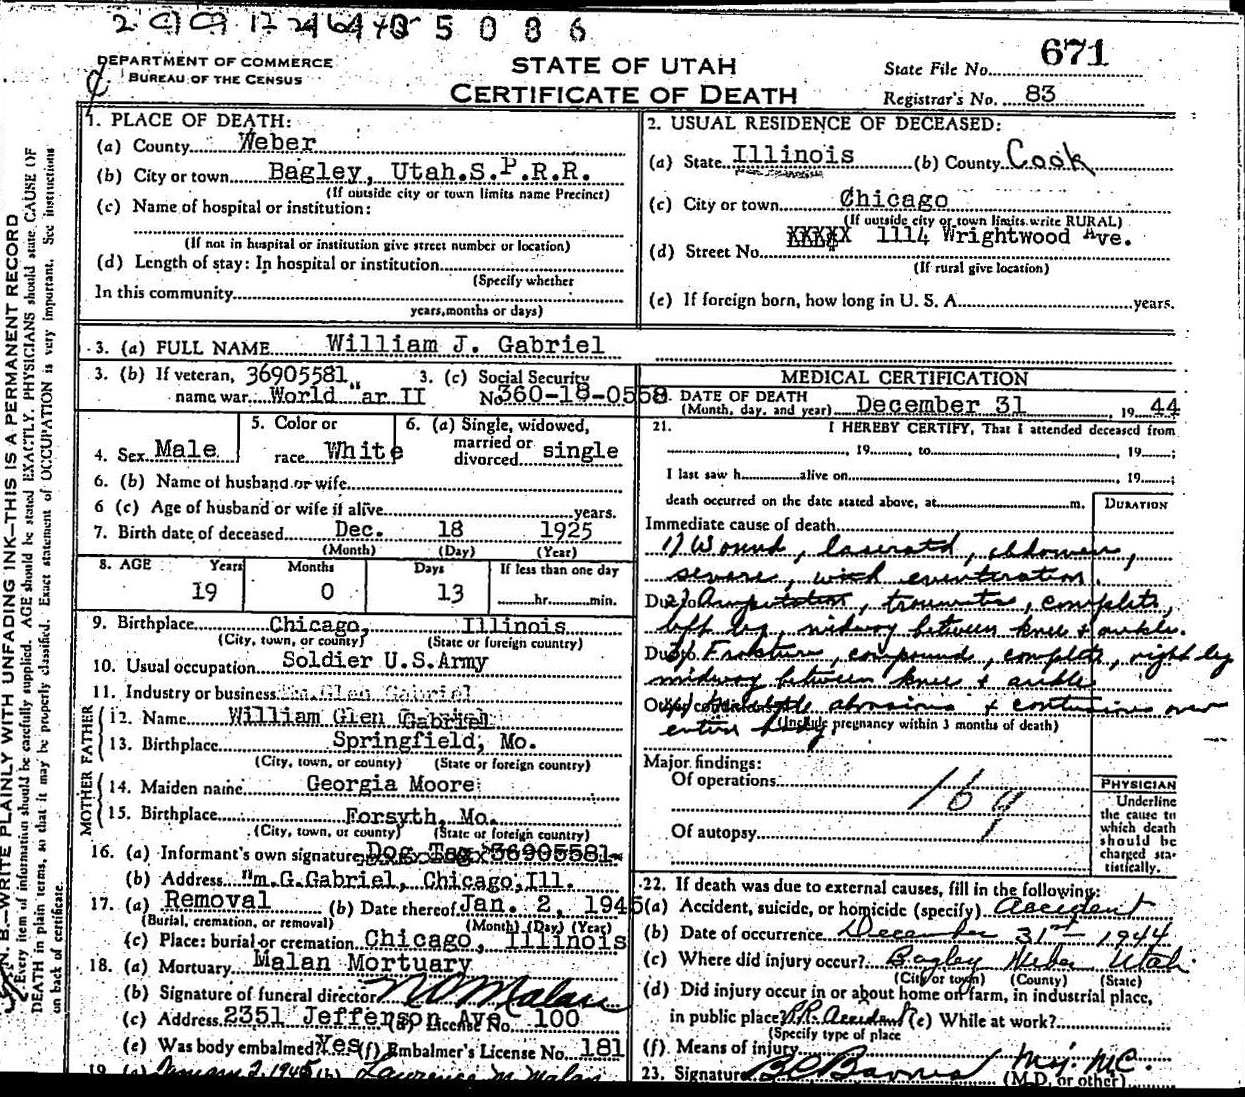 5 0 8 6
DEPARTMENT OF COMMERCE
BUREAU OF THE CENSUS
STATE OF UTAH
CERTIFICATE OF DEATH
State File No. 671
Registrar's No. 83
N. B.—WRITE PLAINLY WITH UNFADING INK—THIS IS A PERMANENT RECORD
Every item of information should be carefully supplied. AGE should be stated EXACTLY. PHYSICIANS should state CAUSE OF
DEATH in plain terms, so that it may be properly classified. Exact statement of OCCUPATION is very important. See instructions
on back of certificate.
1. PLACE OF DEATH:
(a) County Weber
(b) City or town Bagley, Utah.S.P.R.R.
(If outside city or town limits name Precinct)
(c) Name of hospital or institution:
(If not in hospital or institution give street number or location)
(d) Length of stay: In hospital or institution
(Specify whether
In this community
years, months or days)
2. USUAL RESIDENCE OF DECEASED:
(a) State Illinois (b) County Cook
(c) City or town Chicago
(If outside city or town limits write RURAL)
(d) Street No. XXXXX 1114 Wrightwood Ave.
(If rural give location)
(e) If foreign born, how long in U. S. A. years.
3. (a) FULL NAME William J. Gabriel
3. (b) If veteran, 36905581
name war World ar II
3. (c) Social Security
No. 360-18-0558
4. Sex Male
5. Color or
race White
6. (a) Single, widowed,
married or
divorced single
6. (b) Name of husband or wife
6 (c) Age of husband or wife if alive years.
7. Birth date of deceased Dec. 18 1925
(Month) (Day) (Year)
8. AGE Years Months Days If less than one day
19 0 13 hr. min.
9. Birthplace Chicago, Illinois
(City, town, or county) (State or foreign country)
10. Usual occupation Soldier U.S.Army
11. Industry or business
FATHER
12. Name William Glen Gabriel
13. Birthplace Springfield, Mo.
(City, town, or county) (State or foreign country)
MOTHER
14. Maiden name Georgia Moore
15. Birthplace Forsyth, Mo.
(City, town, or county) (State or foreign country)
16. (a) Informant's own signature Dog Tag 36905581
(b) Address Wm.G.Gabriel, Chicago,Ill.
17. (a) Removal (b) Date thereof Jan. 2, 1945
(Burial, cremation, or removal) (Month) (Day) (Year)
(c) Place: burial or cremation Chicago, Illinois
18. (a) Mortuary Malan Mortuary
(b) Signature of funeral director N O Malan
(c) Address 2351 Jefferson Ave (d) License No. 100
(e) Was body embalmed Yes (f) Embalmer's License No. 181
19. (a) January 2, 1945 (b) Lawrence M. Malan
MEDICAL CERTIFICATION
DATE OF DEATH
(Month, day, and year) December 31, 19 44
21. I HEREBY CERTIFY, That I attended deceased from
, 19 , to , 19 ;
I last saw h alive on , 19 ;
death occurred on the date stated above, at m.
DURATION
Immediate cause of death
1) Wound, lacerated, abdomen,
severe, with eventration.
Due to 2) Amputation, traumatic, complete,
left leg, midway between knee & ankle.
Due to 3) Fracture, compound, complete, right leg
midway between knee & ankle
abrasions & contusions over
entire body
(Include pregnancy within 3 months of death)
Major findings:
Of operations
169
Of autopsy
PHYSICIAN
Underline
the cause to
which death
should be
charged sta-
tistically.
22. If death was due to external causes, fill in the following:
(a) Accident, suicide, or homicide (specify) Accident
(b) Date of occurrence December 31st 1944
(c) Where did injury occur? Bagley Weber Utah
(City or town) (County) (State)
(d) Did injury occur in or about home on farm, in industrial place,
in public place? RR. Accident (e) While at work?
(Specify type of place
(f) Means of injury
23. Signature B C Barnes Maj. M.C.
(M.D. or other)